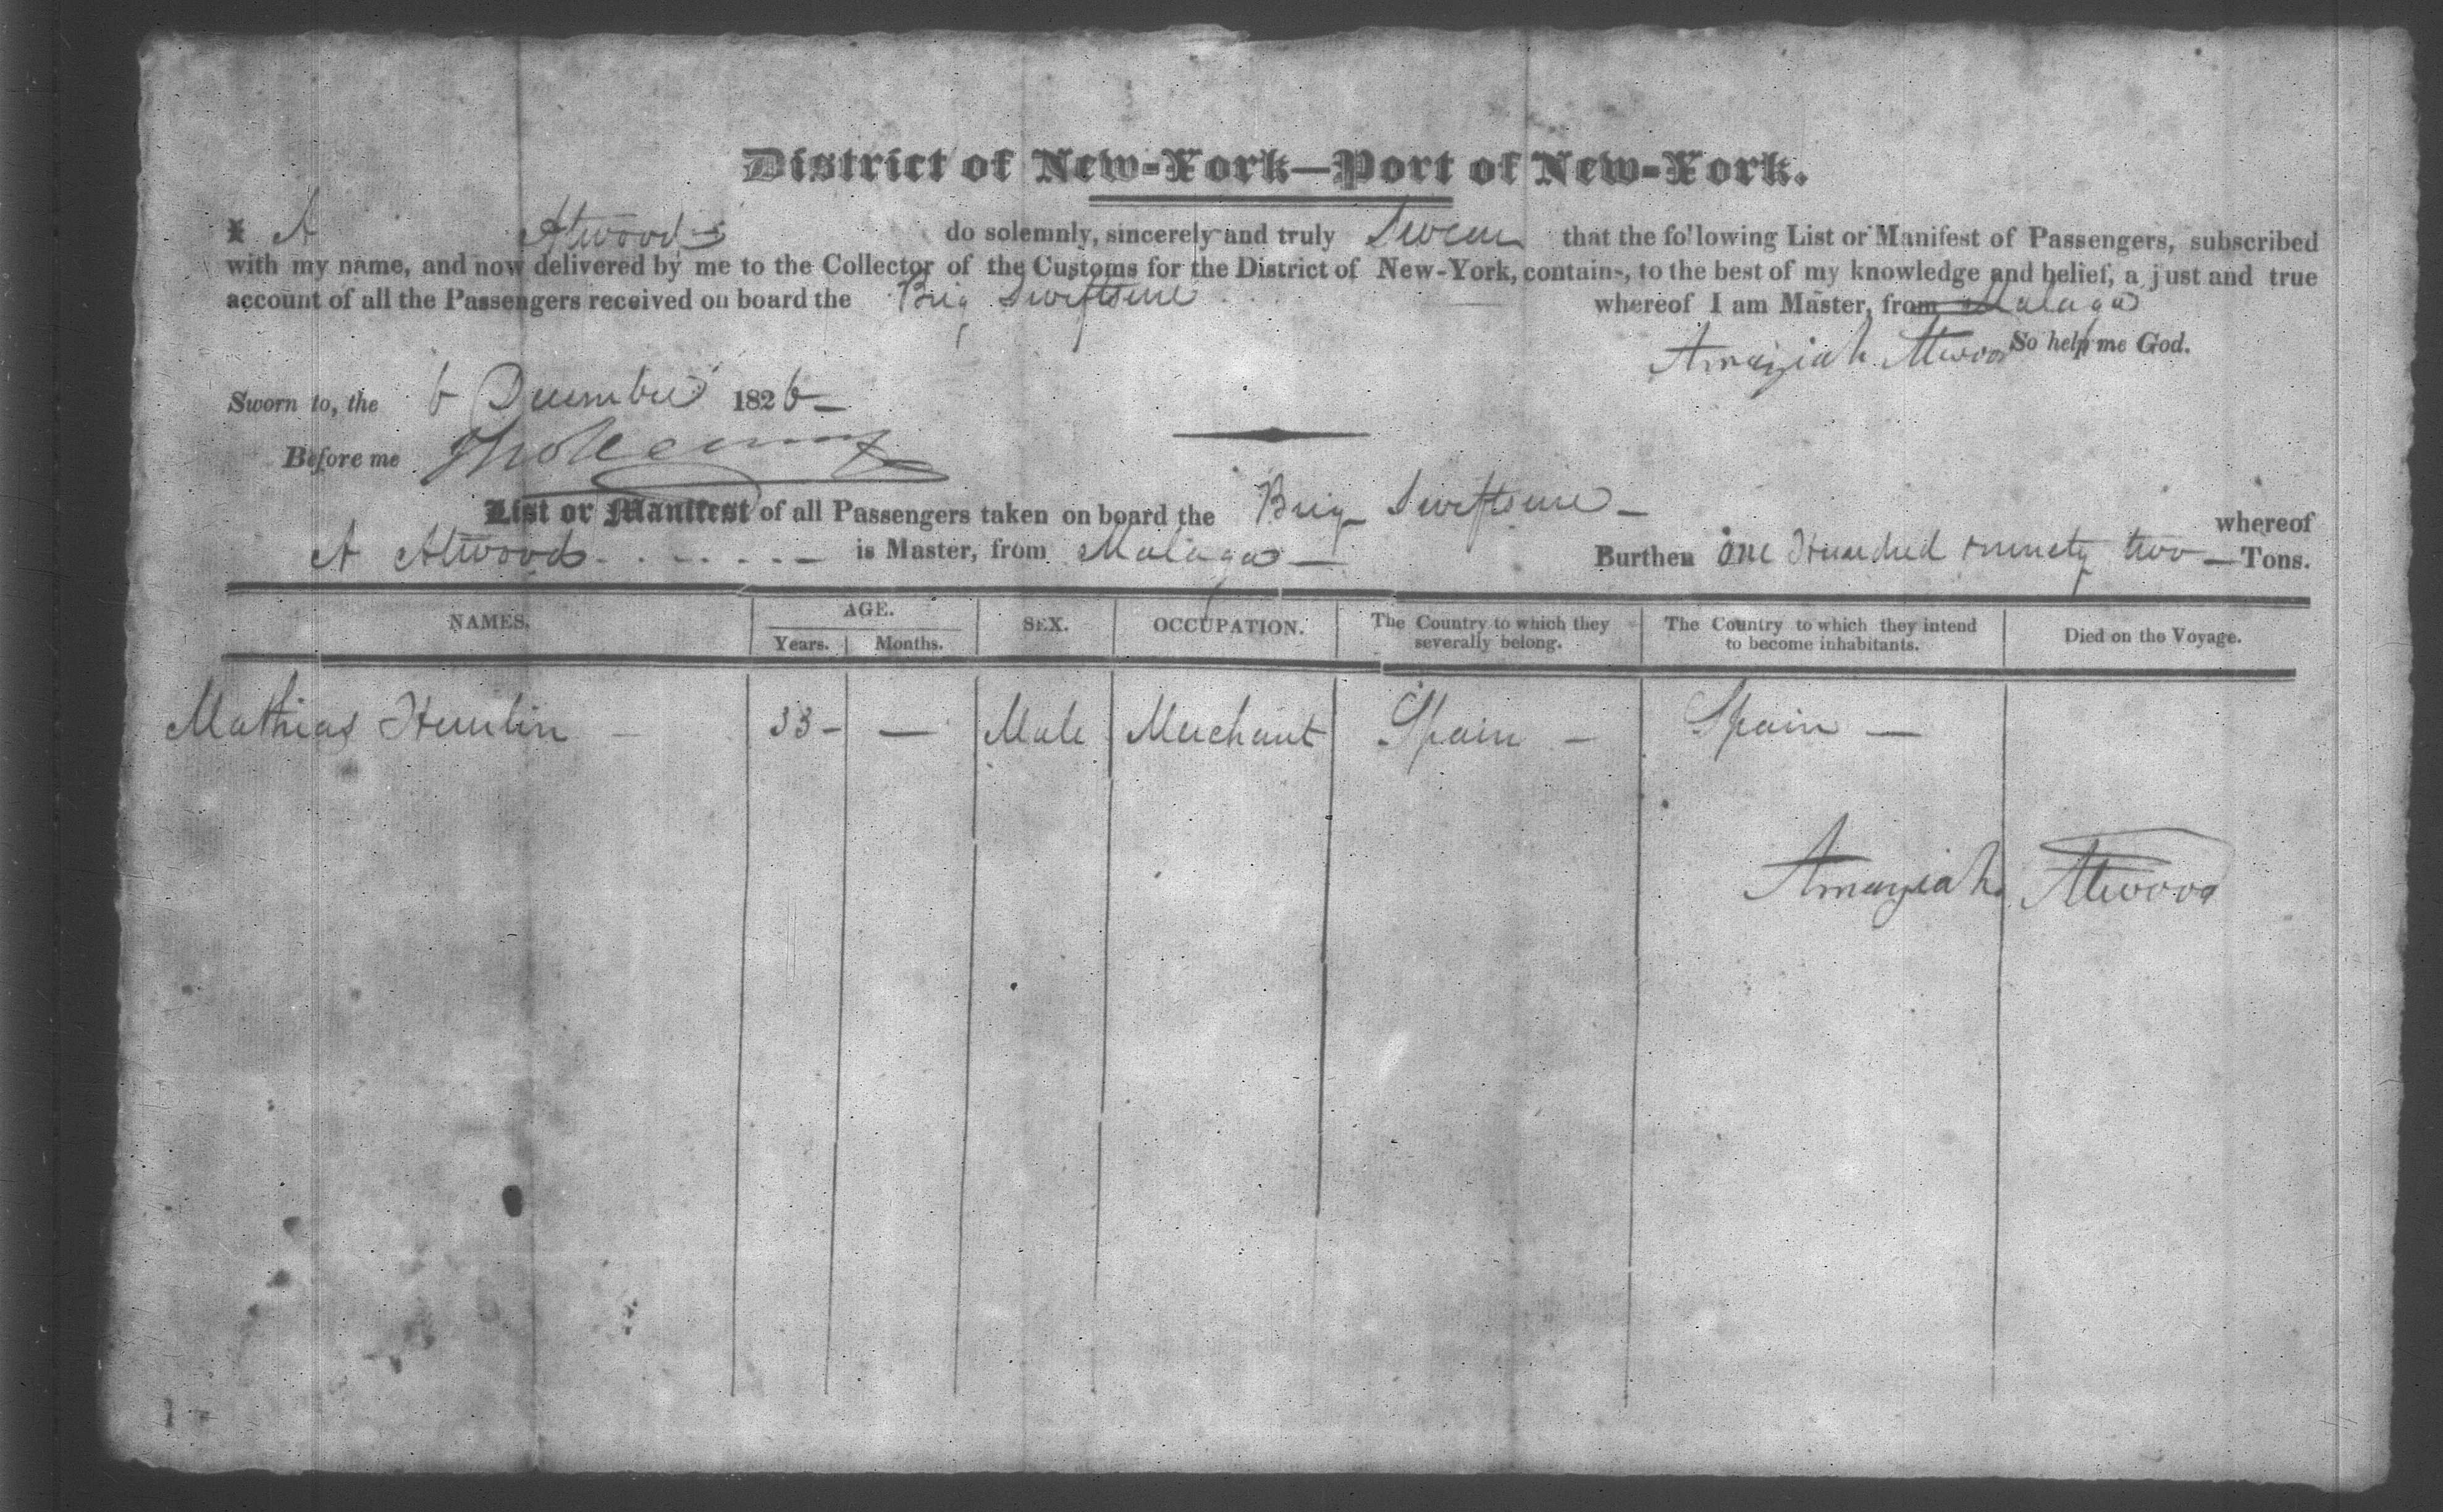 District of New-York—Port of New-York.
I A Atwood do solemnly, sincerely and truly Swear that the following List or Manifest of Passengers, subscribed
with my name, and now delivered by me to the Collector of the Customs for the District of New-York, contains, to the best of my knowledge and belief, a just and true
account of all the Passengers received on board the Brig Swiftsure whereof I am Master, from Malaga
Amaziah Atwood So help me God.
Sworn to, the 6 December 1826—
Before me
List or Manifest of all Passengers taken on board the Brig Swiftsure — whereof
A Atwood . . - - . - — is Master, from Malaga — Burthen One Hundred & ninety two — Tons.
NAMES. AGE. SEX. OCCUPATION. The Country to which they severally belong. The Country to which they intend to become inhabitants. Died on the Voyage.
Years. Months.
Mathias — 33 - — Male Merchant Spain — Spain —
Amaziah Atwood